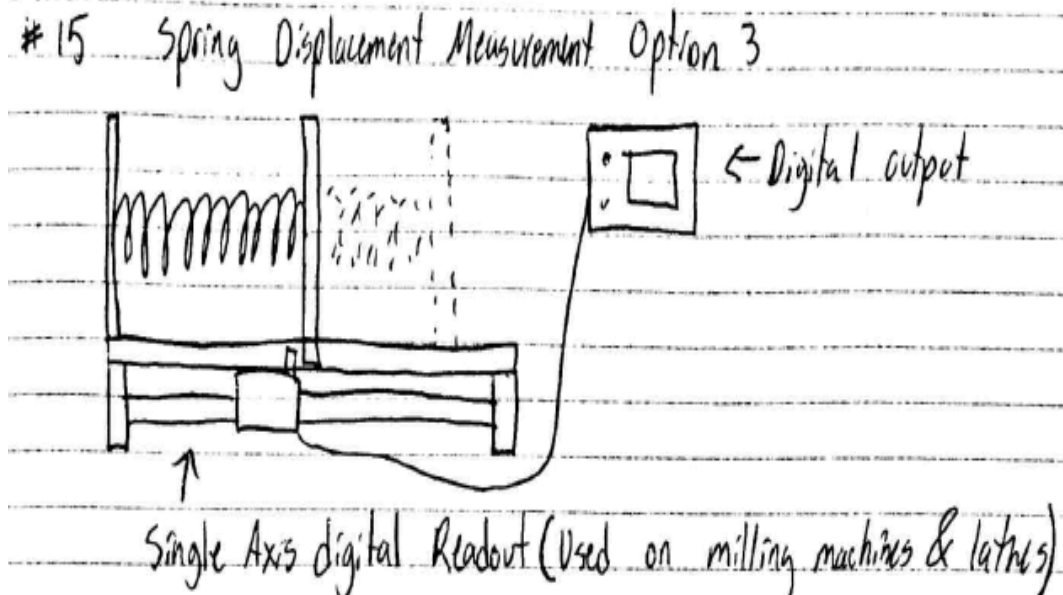 #15 Spring Displacement Measurement Option 3
← Digital output
Single Axis digital Readout (Used on milling machines & lathes)